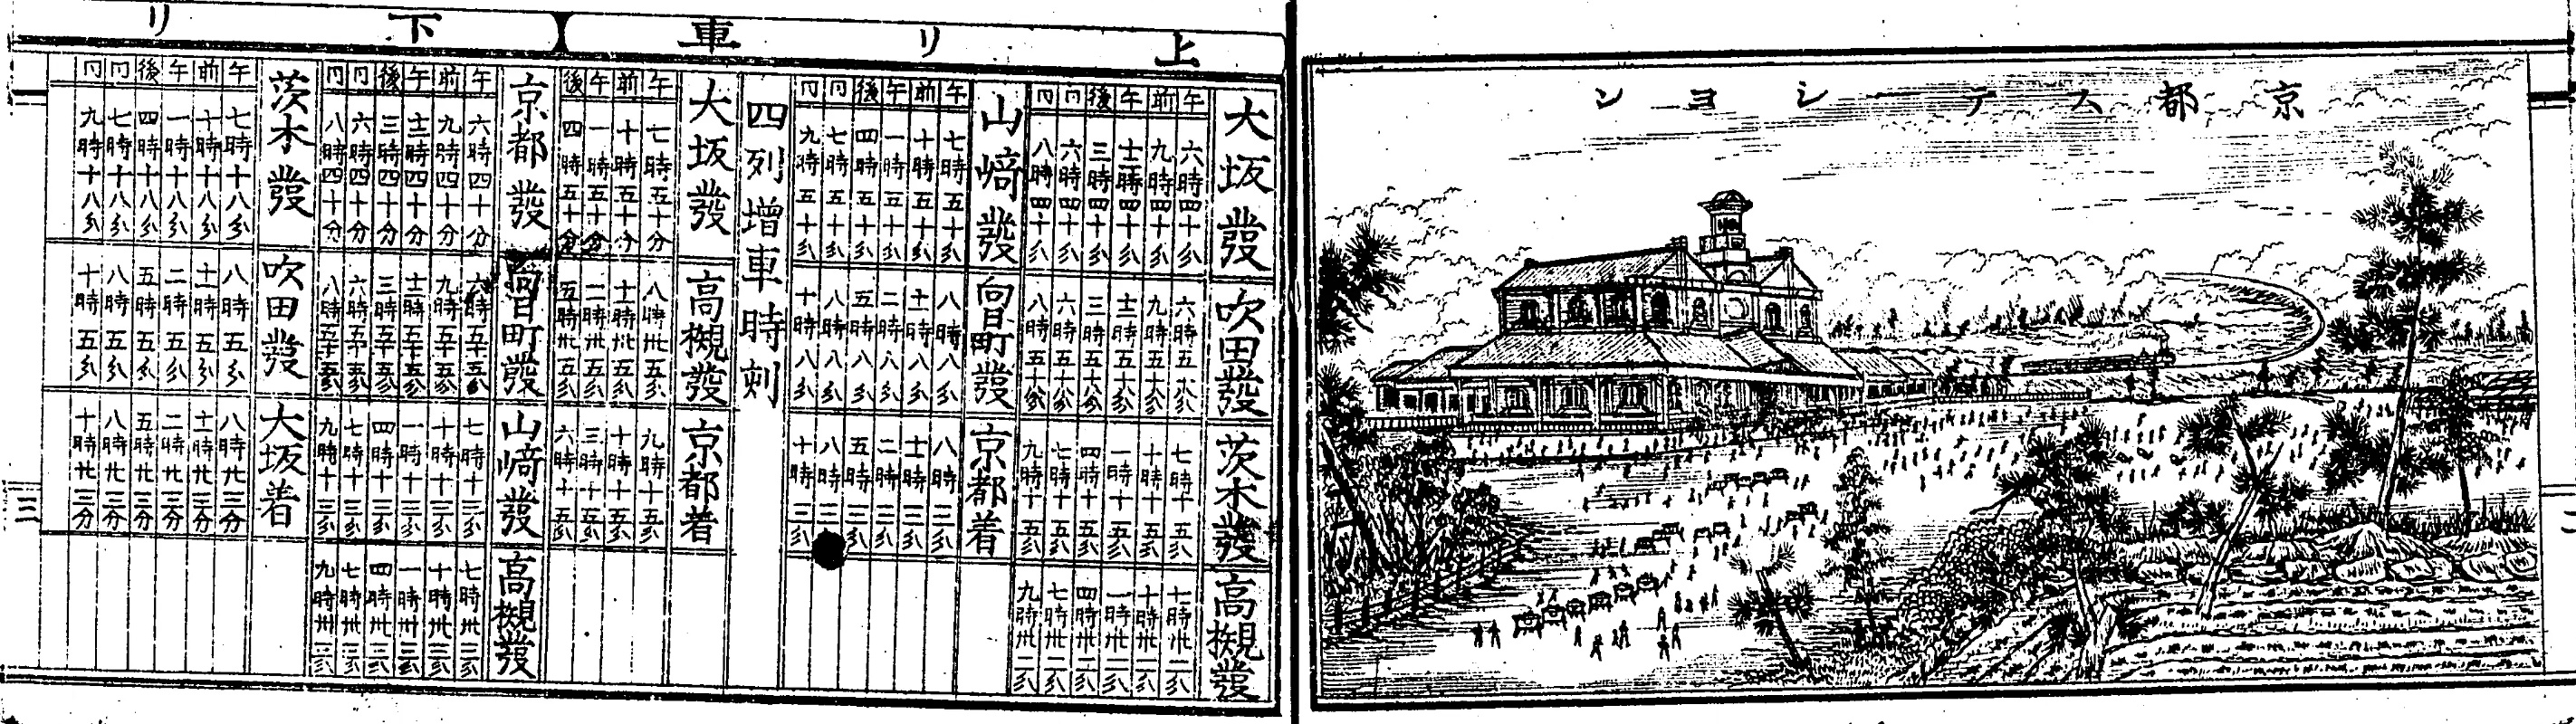 京都ステーシヨン
二
上リ車
大坂發
午 六時四十分
前 九時四十分
午 十二時四十分
後 三時四十分
同 六時四十分
同 八時四十分
吹田發
六時五十八分
九時五十八分
十二時五十八分
三時五十八分
六時五十八分
八時五十八分
茨木發
七時十五分
十時十五分
一時十五分
四時十五分
七時十五分
九時十五分
高槻發
七時卅二分
十時卅二分
一時卅二分
四時卅二分
七時卅二分
九時卅二分
山﨑發
午 七時五十分
前 十時五十分
午 一時五十分
後 四時五十分
同 七時五十分
同 九時五十分
向日町發
八時八分
十一時八分
二時八分
五時八分
八時八分
十時八分
京都着
八時
十一時
二時
五時
八時
十時
四列增車時刻
大坂發
午 七時五十分
前 十時五十分
午 一時五十分
後 四時五十分
高槻發
八時卅五分
十一時卅五分
二時卅五分
五時卅五分
京都着
九時十五分
十時十五分
三時十五分
六時十五分
下リ
京都發
午 六時四十分
前 九時四十分
午 十二時四十分
後 三時四十分
同 六時四十分
同 八時四十分
向日町發
六時五十五分
九時五十五分
十二時五十五分
三時五十五分
六時五十五分
八時五十五分
山﨑發
七時十三分
十時十三分
一時十三分
四時十三分
七時十三分
九時十三分
高槻發
七時卅三分
十時卅三分
一時卅三分
四時卅三分
七時卅三分
九時卅三分
茨木發
午 七時十八分
前 十時十八分
午 一時十八分
後 四時十八分
同 七時十八分
同 九時十八分
吹田發
八時五分
十一時五分
二時五分
五時五分
八時五分
十時五分
大坂着
八時廿三分
十一時廿三分
二時廿三分
五時廿三分
八時廿三分
十時廿三分
三